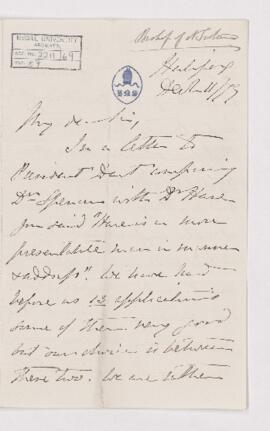 McGILL UNIVERSITY
ARCHIVES
ACC. NO. 2211/69
REF. 59
Bishop of N. Scotia
Halifax
Dec. 11/79
My dear Sir,
In a letter to
President Dart comparing
Dr. Spencer with Dr. Hare
you said "Hare is a more
presentable man in manner
& address". We have had
before us 12 applications
some of them very good
but our choice is between
these two. We are rather